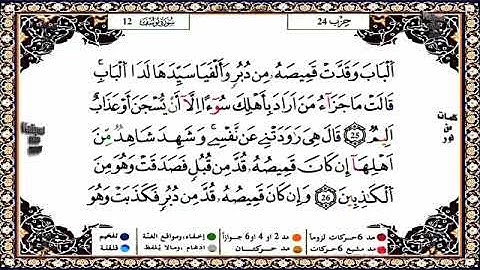 سورة يوسف 12
حزب 24
اَلْبَابَ وَقَدَّتْ قَمِيصَهُۥ مِن دُبُرٍ وَأَلْفَيَا سَيِّدَهَا لَدَا اَلْبَابِۖ
قَالَتْ مَا جَزَآءُ مَنْ أَرَادَ بِأَهْلِكَ سُوٓءًا اِلَّآ أَنْ يُّسْجَنَ أَوْ عَذَابٌ
اَلِيمٌۖ 25 قَالَ هِيَ رَٰوَدَتْنِي عَن نَّفْسِيۖ وَشَهِدَ شَاهِدٌ مِّنَ
اَهْلِهَآ إِن كَانَ قَمِيصُهُۥ قُدَّ مِن قُبُلٍ فَصَدَقَتْ وَهُوَ مِنَ
اَلْكَٰذِبِينَ 26 وَإِن كَانَ قَمِيصُهُۥ قُدَّ مِن دُبُرٍ فَكَذَبَتْ وَهُوَ
كلمات
من
نور
مد 6 حركات لزوما مد 2 أو 4 أو 6 جوازا إخفاء، ومواقع الغنة تفخيم
مد مشبع 6 حركات مد حركتان ادغام، ومالا يلفظ قلقلة